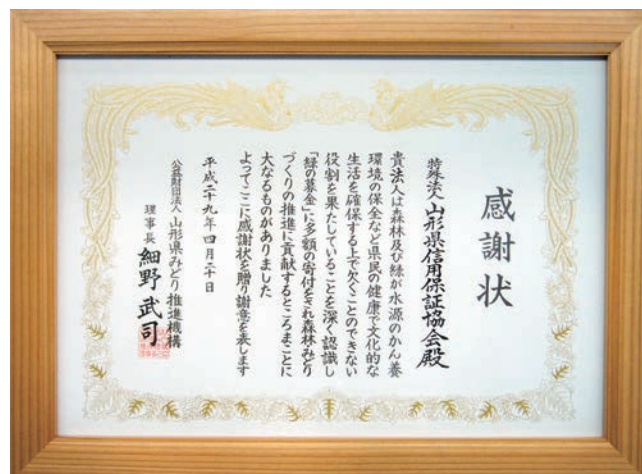 感謝状
特殊法人 山形県信用保証協会殿
貴法人は森林及び緑が水源のかん養
環境の保全など県民の健康で文化的な
生活を確保する上で欠くことのできない
役割を果たしていることを深く認識し
「緑の募金」に多額の寄付をされ森林みどり
づくりの推進に貢献するところまことに
大なるものがありました
よってここに感謝状を贈り謝意を表します
平成二十九年四月二十日
公益財団法人 山形県みどり推進機構
理事長 細野武司